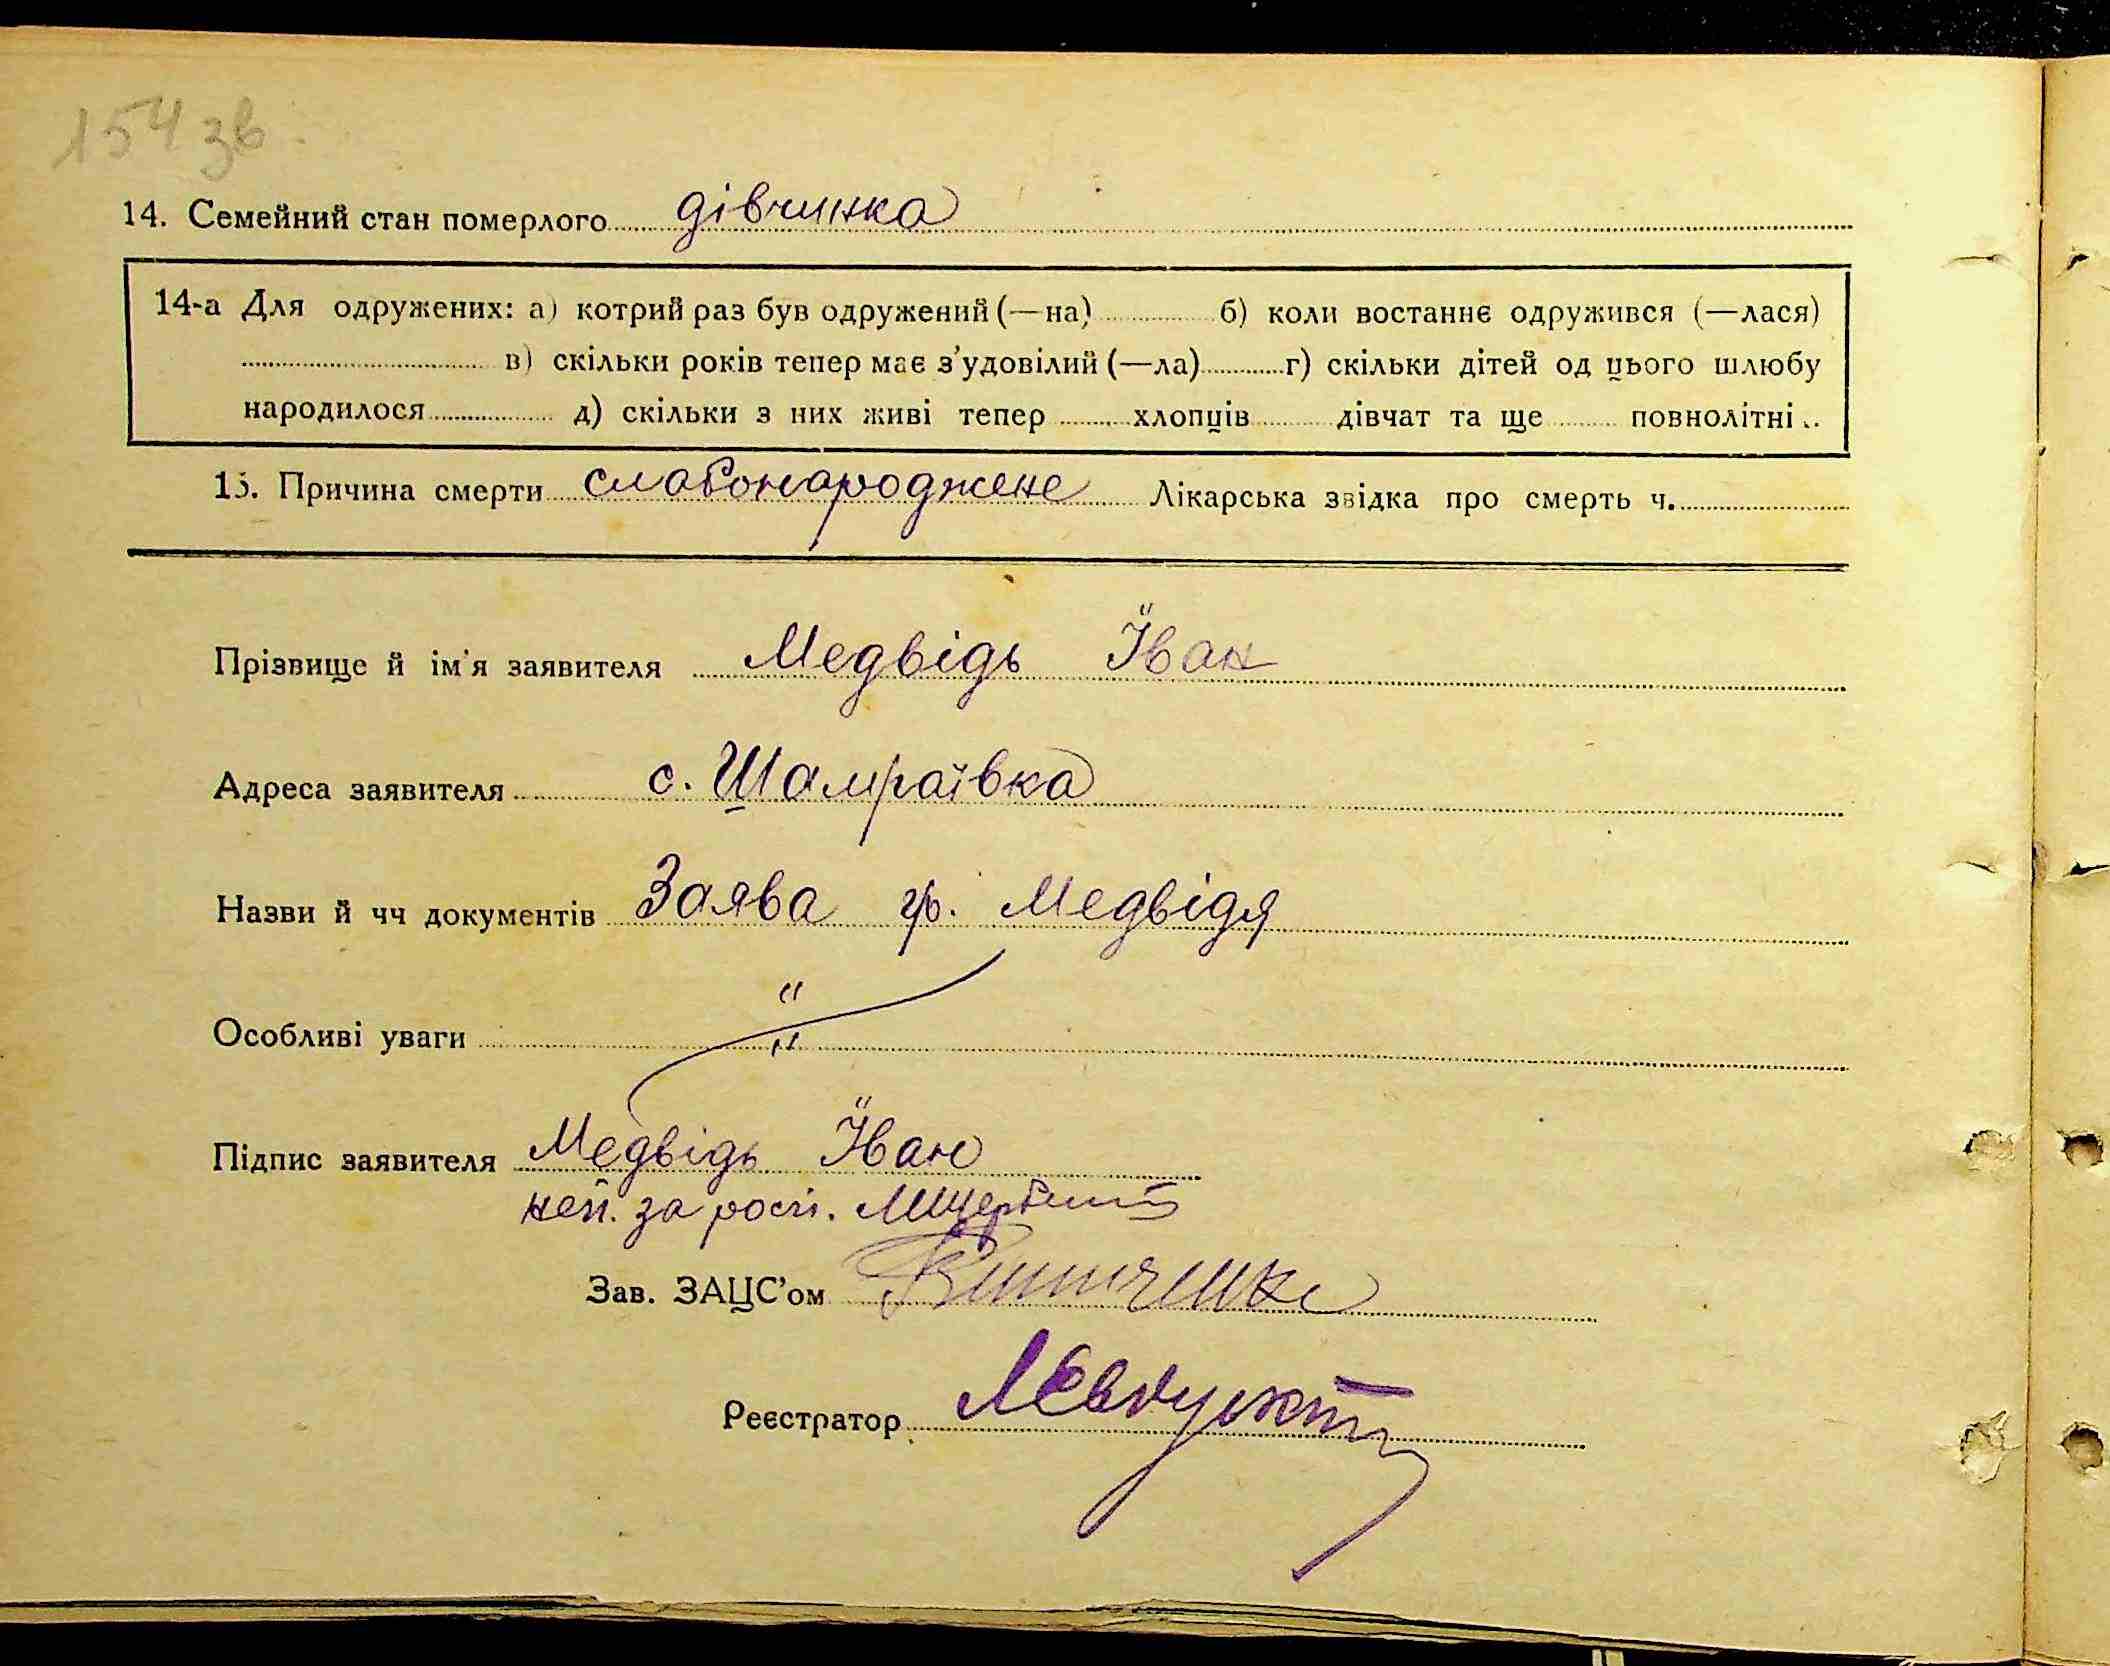 154 зв.
14. Семейний стан померлого дівчинка
14-а Для одружених: а) котрий раз був одружений (—на) б) коли востаннє одружився (—лася)
в) скільки років тепер має з’удовілий (—ла) г) скільки дітей од цього шлюбу
народилося д) скільки з них живі тепер хлопців дівчат та ще повнолітні
15. Причина смерти слабонароджене Лікарська звідка про смерть ч.
Прізвище й ім'я заявителя Медвідь Їван
Адреса заявителя с. Шамраївка
Назви й чч документів Заява гр. Медвідя
Особливі уваги „ “
Підпис заявителя Медвідь Їван
неп. за росп.
Зав. ЗАЦС’ом
Реєстратор